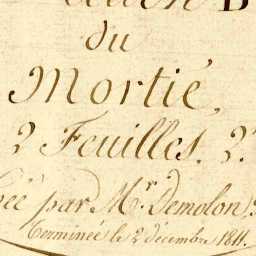 du
Mortié.
2 Feuilles. 2.
par Mr. Demolon,
Terminée le 2 décembre 1811.